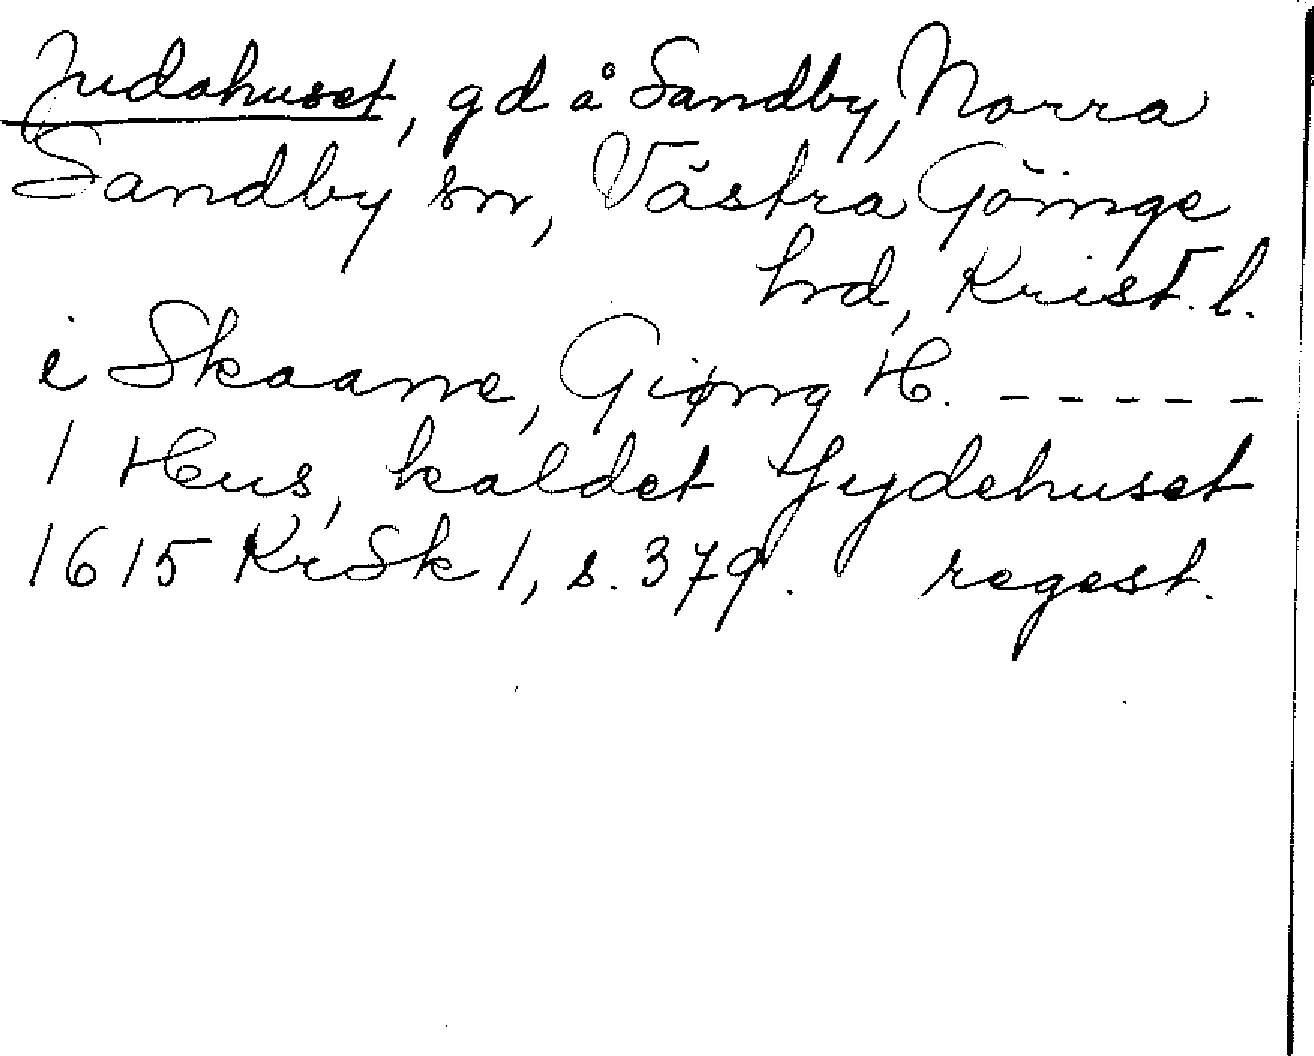 Judahuset, gd å Sandby, Norra
Sandby sn, Västra Göinge
hrd, Krist. l.
i Skaane, Giøng H. - - - - -
1 Hus, kaldet Jydehuset
1615 KrSk 1, s. 379. regest.